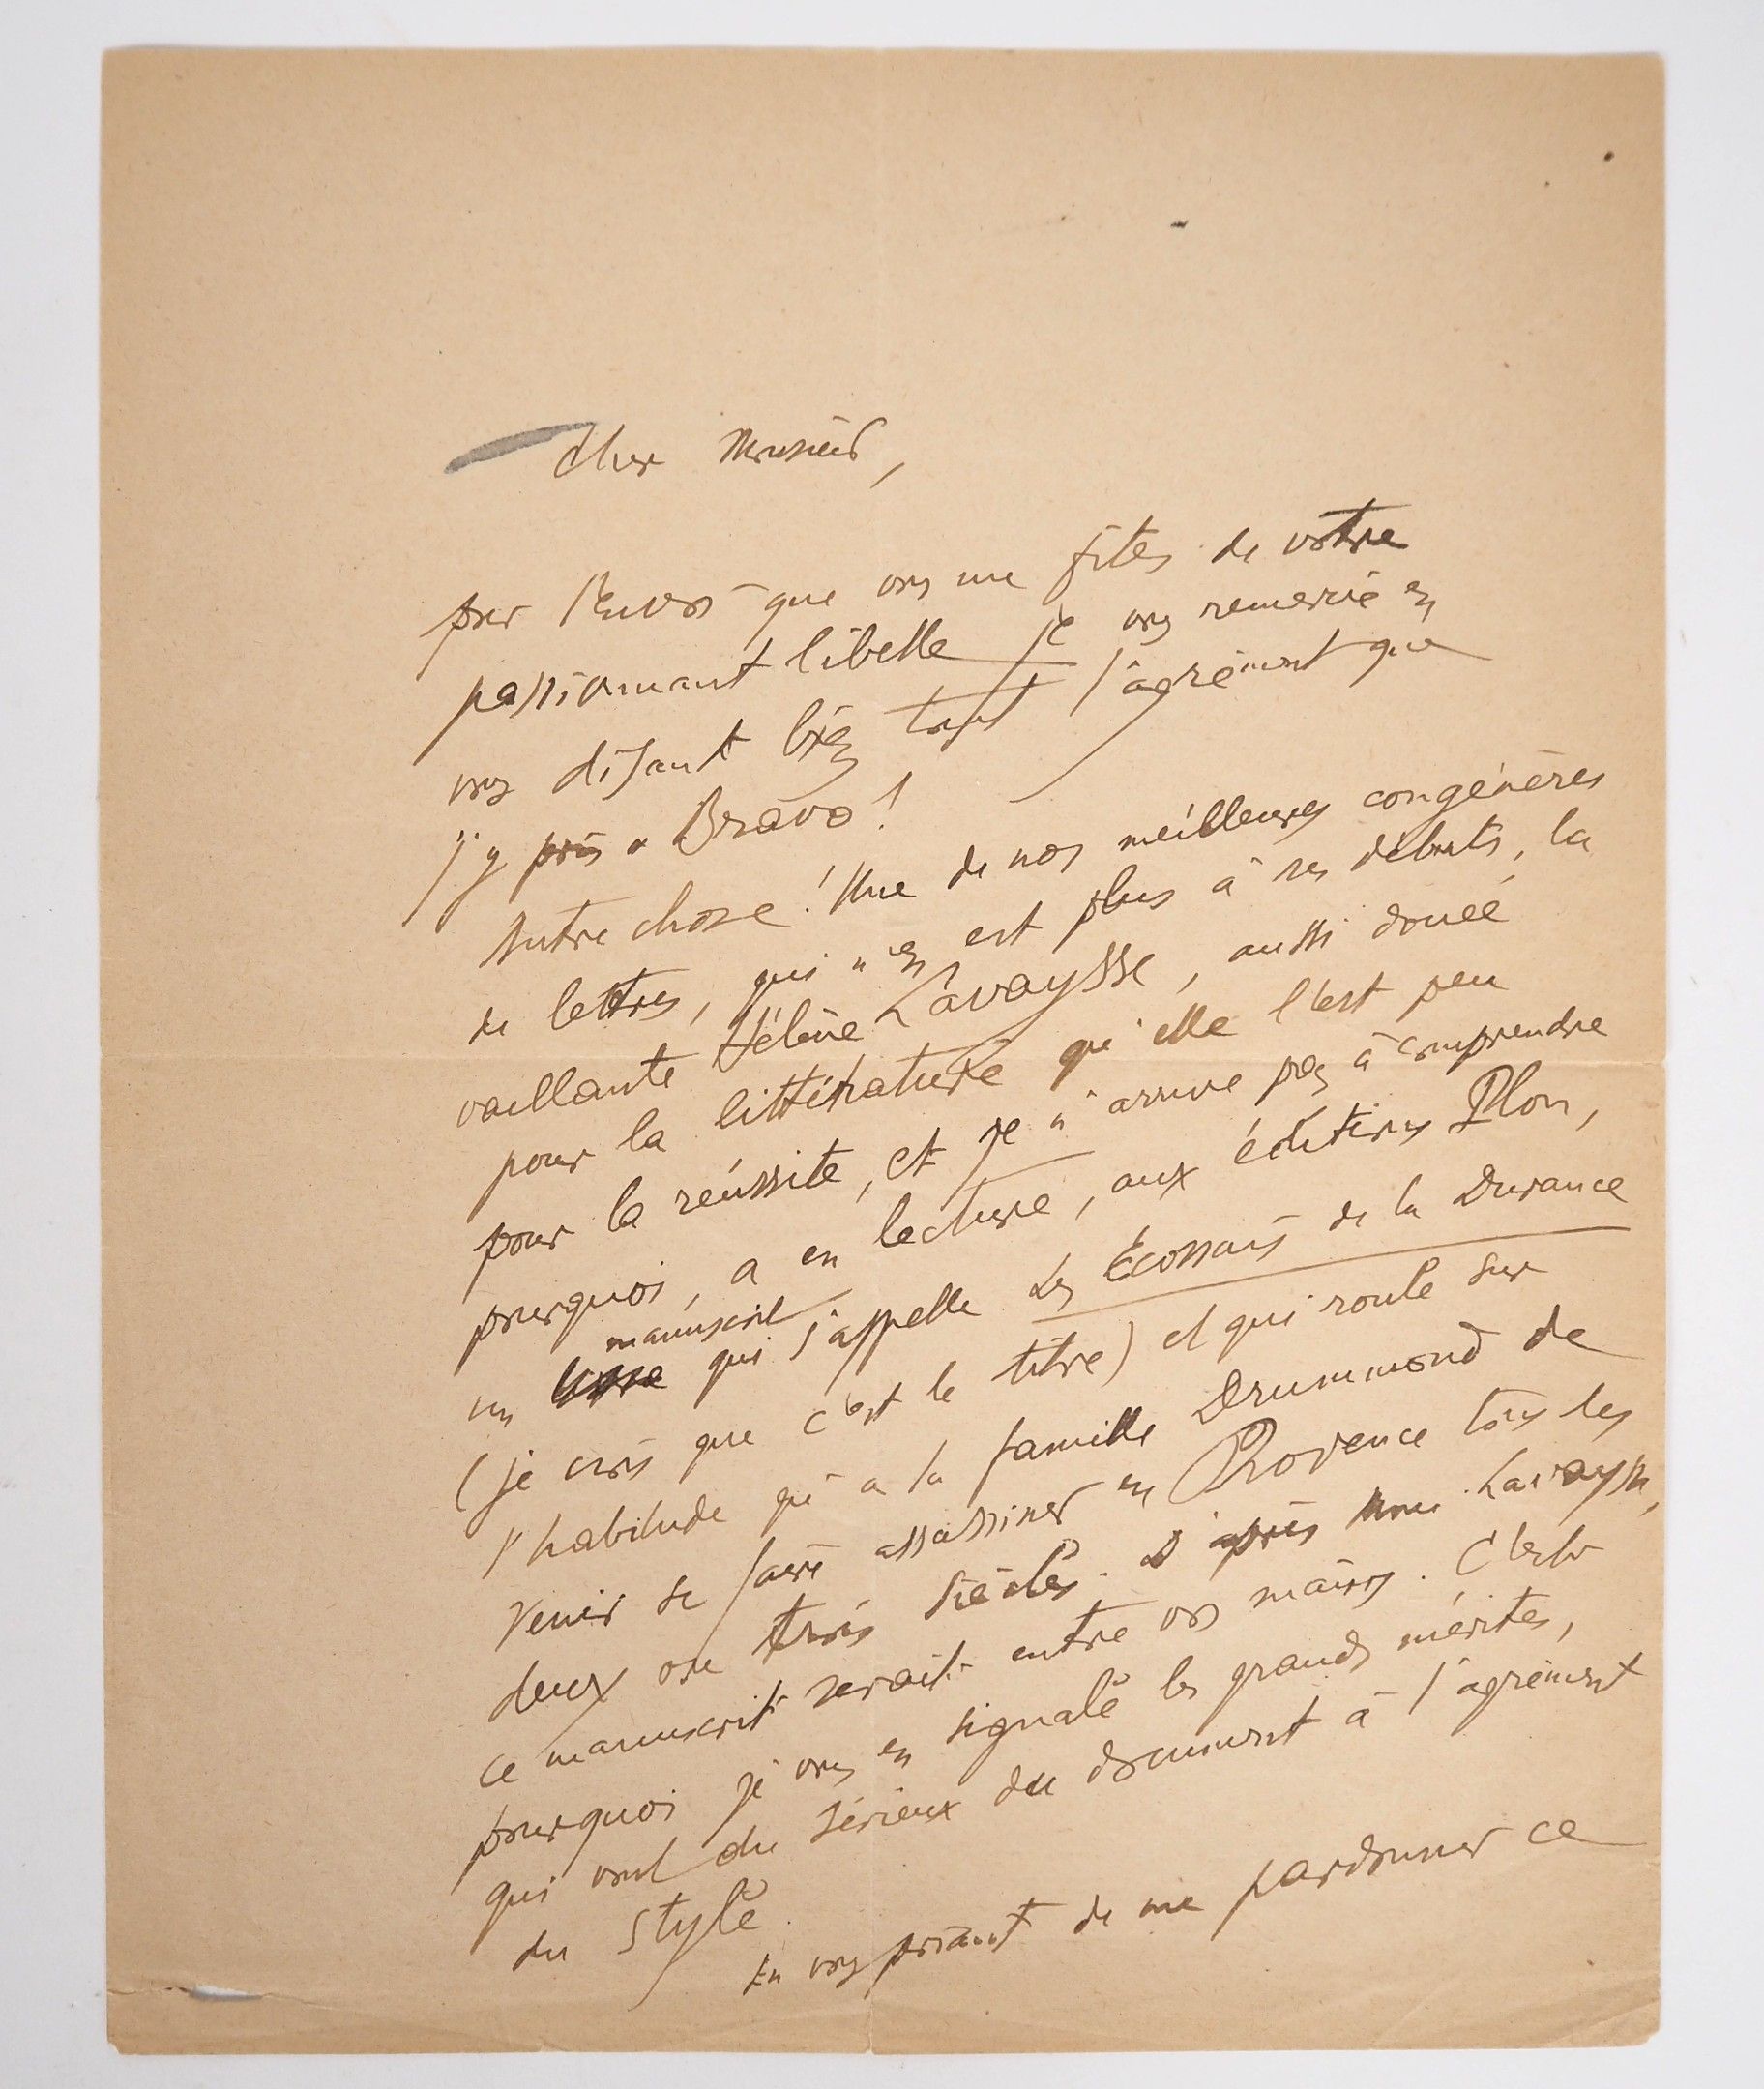 Cher Monsieur,
pour l'envoi que vous me fîtes de votre
passionnant libelle je vous remercie en
vous disant bien tout l'agrément que
j'y pris. Bravo!
Autre chose! Une de nos meilleures congénères
de lettres, qui n'en est plus à ses débuts, la
vaillante Hélène Lavaysse, aussi douée
pour la littérature qu'elle l'est peu
pour la réussite, et je n'arrive pas à comprendre
pourquoi, a en lecture, aux éditions Plon,
manuscrit
un livre qui s'appelle Les Écossais de la Durance
(je crois que c'est le titre) et qui roule sur
l'habitude qu'a la famille Drummond de
venir se faire assassiner en Provence tous les
deux ou trois siècles. D'après Mme Lavaysse,
ce manuscrit serait entre vos mains. C'est
pourquoi je vous en signale les grands mérites,
qui vont du sérieux du document à l'agrément
du style.
En vous priant de me pardonner ce